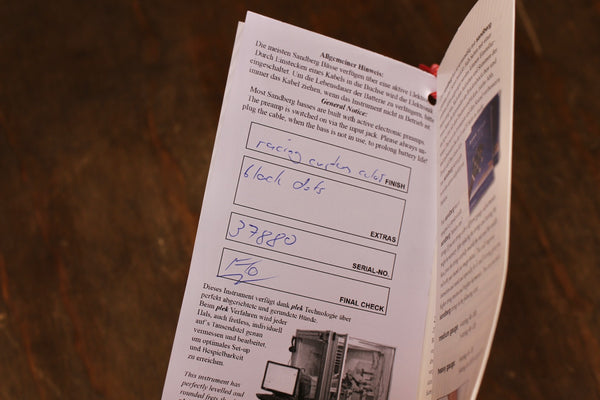 Allgemeiner Hinweis:
Die meisten Sandberg Bässe verfügen über eine aktive Elektronik.
Durch Einstecken eines Kabels in die Buchse wird die Elektronik
eingeschaltet. Um die Lebensdauer der Batterie zu verlängern, bitte
immer das Kabel ziehen, wenn das Instrument nicht in Betrieb ist.
General Notice:
Most Sandberg basses are built with active electronic preamps.
The preamp is switched on via the input jack. Please always un-
plug the cable, when the bass is not in use, to prolong battery life!
racing custom color
FINISH
black dots
EXTRAS
37880
SERIAL-NO.
FINAL CHECK
Dieses Instrument verfügt dank plek Technologie über
perfekt abgerichtete und gerundete Bünde.
Beim plek Verfahren wird jeder
Hals, auch fretless, individuell
auf's Tausendstel genau
vermessen und bearbeitet,
um optimales Set-up
und Bespielbarkeit
zu erreichen.
This instrument has
perfectly levelled and
rounded frets
sandberg
medium gauge
heavy gauge